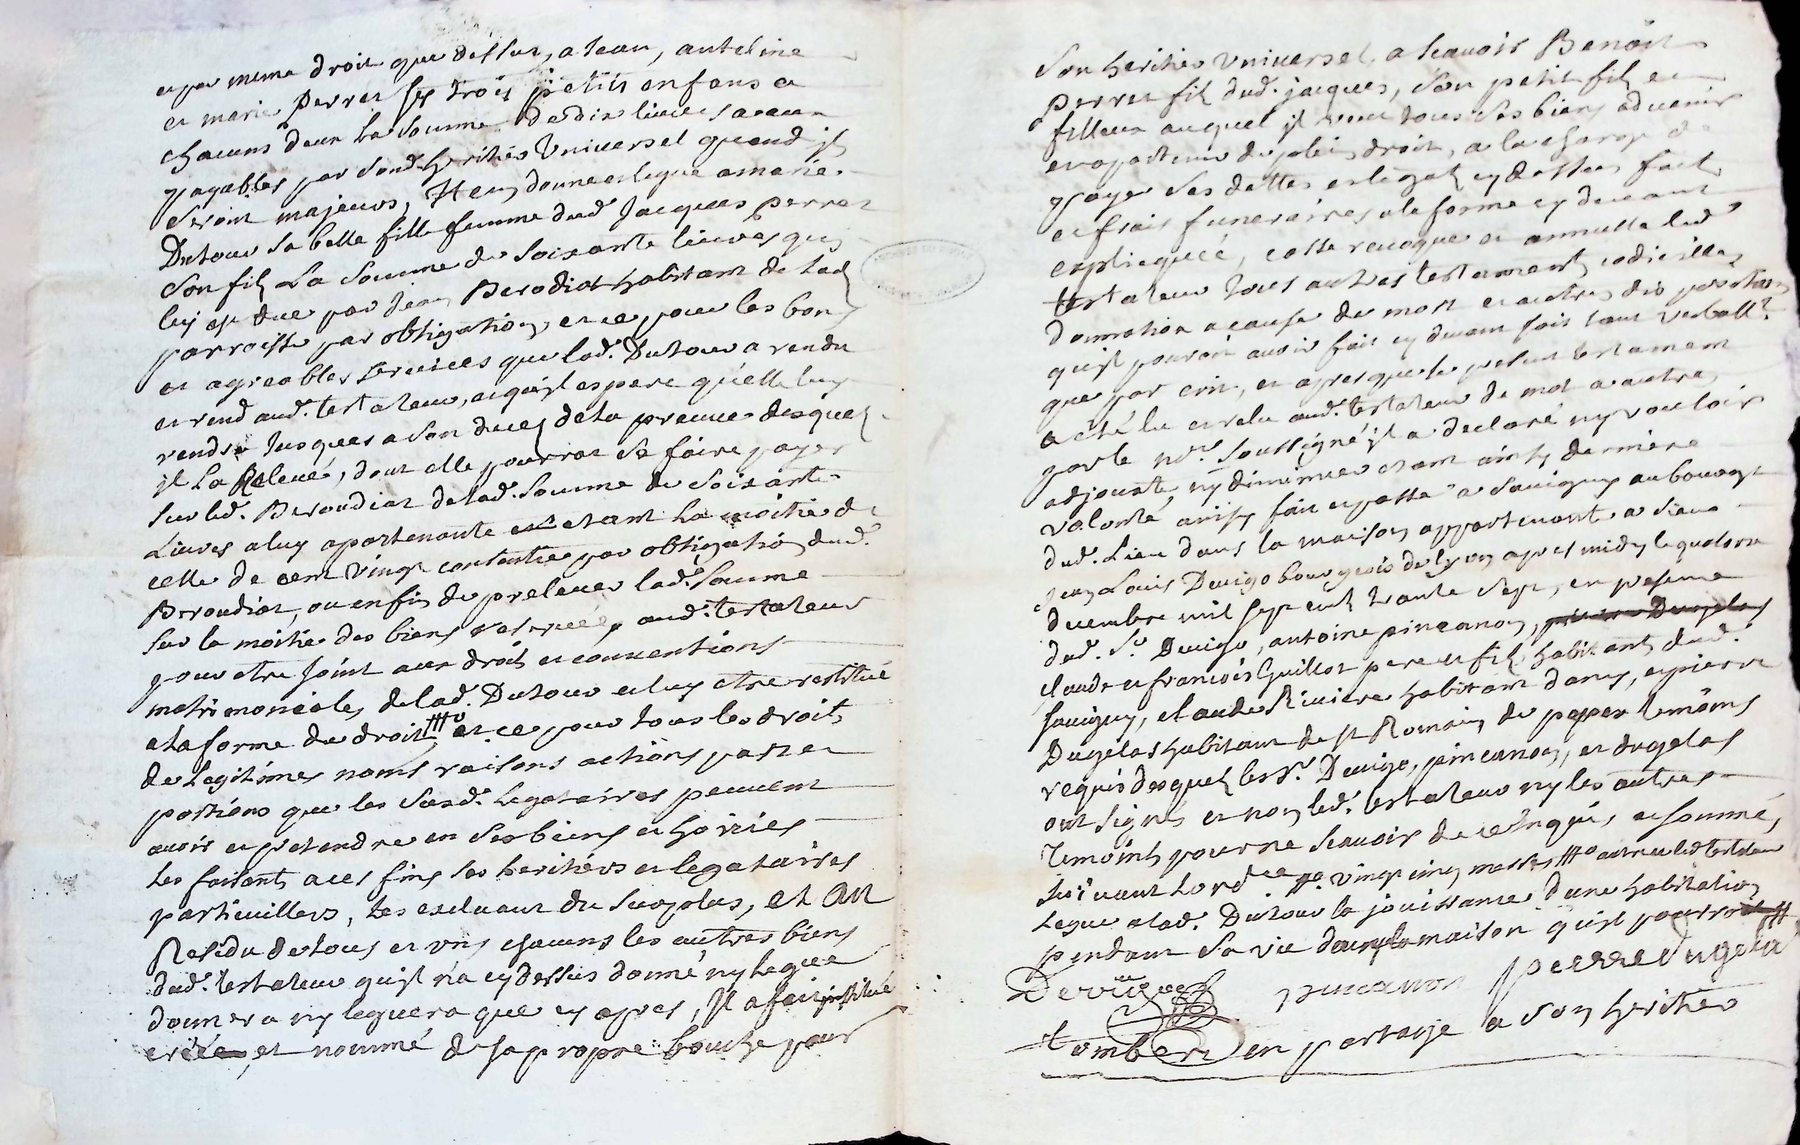 et par meme droit que dessus, a Jean, anteline
et marie perret ses trois petits enfans a
chacuns deux la somme de dix livres aucun
payables par sond. heritier universel quand ils
seront majeurs, Item donne et legue a marie
Dutour sa belle fille femme dud. Jacques perret
son fils La somme de soixante livres quy
luy est due par Jean Berodiat habitant de lad.
parroisse par obligation, et ce pour les bons
et agreables services que lad. Dutour a rendu
et rend aud. testateur, et qu'il espere qu'elle luy
rendra Jusques a son deces de la preuve desquels
il La Releve, dont elle pourrat se faire payer
sur led. Beroudiat de lad. somme de soixante
Livres a luy apartenante et etant La moitié de
celle de cent vingt contenue par obligation dud.
Beroudiat, ou enfin de prelever lad. somme
sur la moitié des biens reservés aud. testateur
pour etre joint aux droits et conventions
matrimoniales de lad. Dutour et luy etre restitué
a la forme du droit, et ce pour tous les droits
de legitimes noms raisons actions parts et
portions que les susd. Legataires peuvent
avoir et pretendre en ses biens et hoiries
Les faisants a ces fins ses heritiers et legataires
particuliers, Les excluant du surplus, et Au
Residu de tous et uns chacuns les autres biens
dud. testateur qu'il n'a cy dessus donné ny legué
donnera ny leguera que cy apres, Il a fait institué
creée, et nommé de sa propre bouche pour
son heritier universel, a scavoir Benoist
perret fils dud. jacques, son petit fils et
filleux auquel il veut tous ses biens advenir
et apartenir de plein droit, a la charge de
payer ses dettes et legats cy dessus fait
et frais funeraires a la forme cy devant
expliequée, casse revoque et annulle led.
testateur tous autres testaments codicilles
donnation a cause de mort et autres dispositions
qu'il pourroit avoir fait cy devant soit tant verball.t
que par ecrit, et apres que le present testament
a eté lu et relu aud. testateur de mot a autre
par le n.re soussigné il a declaré ny vouloir
adjouter ny diminuer etant ainsy derniere
volonté ainsy fait et passé a Savigny au bourg
dud. Lieu dans la maison appartenante a sieur
Jean Louis Devigo bourgeois de Lyon apres midy le quatorze
decembre mil sept cent trante sept, en presence
dud. S.r Devigo, antoine pincanon,
claude et francois Guillot pere et fils habitants dud.
Savigny, claude Riviere habitant d'ancy, et pierre
Dugelas habitant de st Romain de popex temoins
requis desquels les S.rs Devigo, pincanon, et dugelas
ont signés et non led. testateur ny les autres
temoins pour ne scavoir de ce enquis et sommé,
suivant Lord.ce vingt cinq mars outre ce led. testateur
Legue a lad. Dutour la jouissance d'une habitation
pendant sa vie dans la maison qu'il pourroit
Devigo pincanon pierre dugela
tomber en partage a son heritier